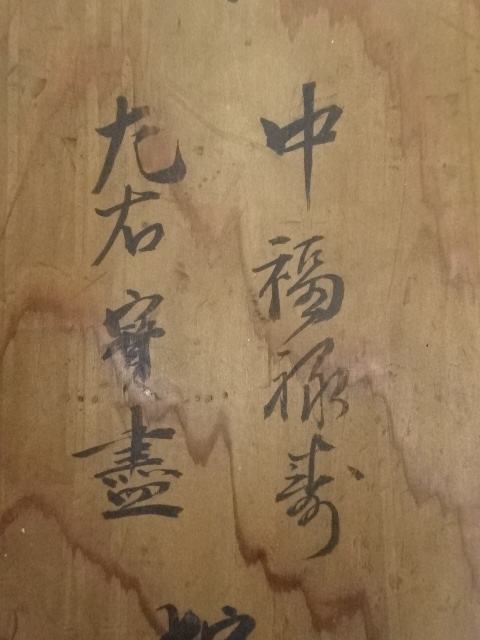 中福禄寿
左右寶盡